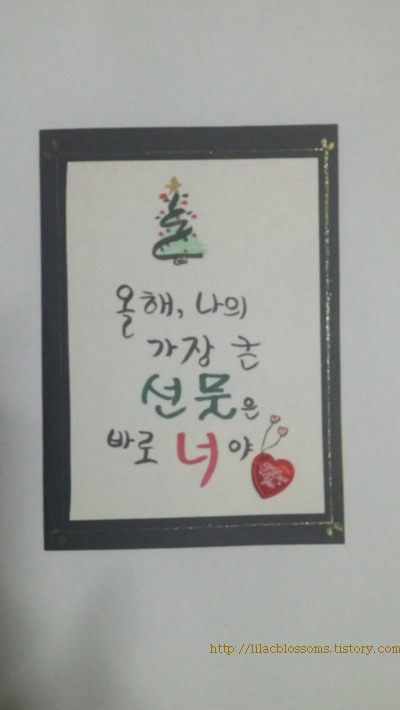 올해, 나의
가장 큰
선물은
바로 너야
http://lilacblossoms.tistory.com